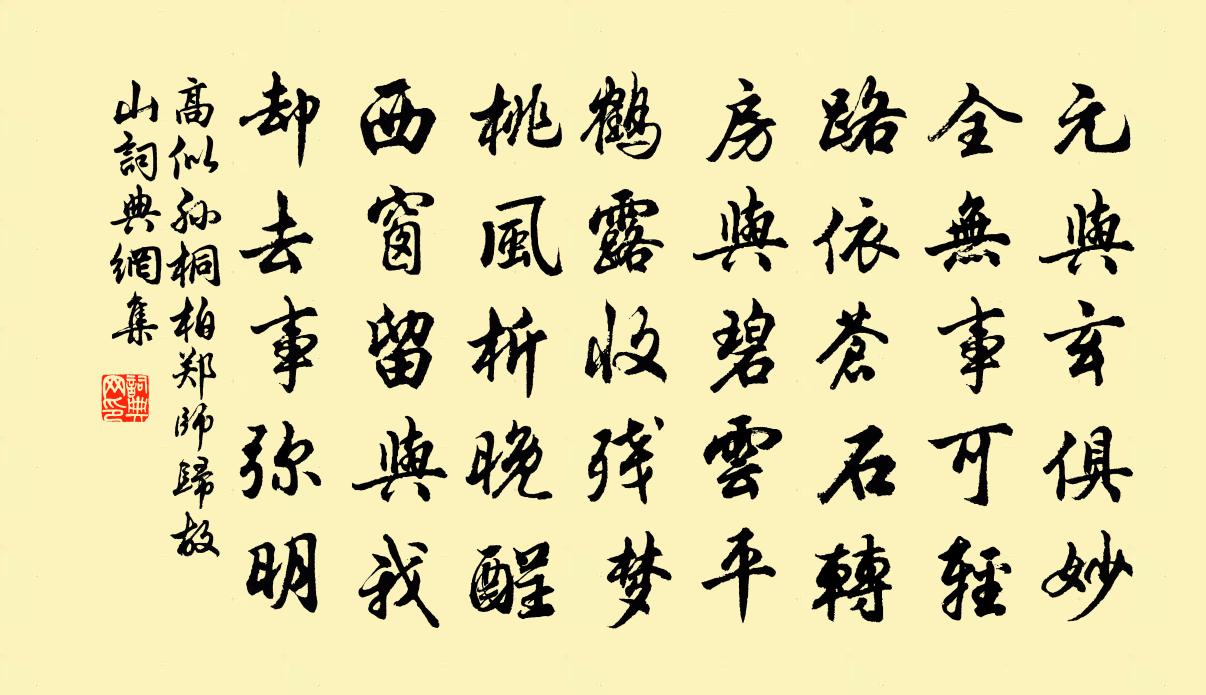 元與玄俱妙
全無事可輕
路依蒼石轉
房與碧雲平
鶴露收残梦
桃風析晚酲
西窗留與我
却去事弥明
高似孙桐柏郑師歸故
山詞典網集
詞典
网印